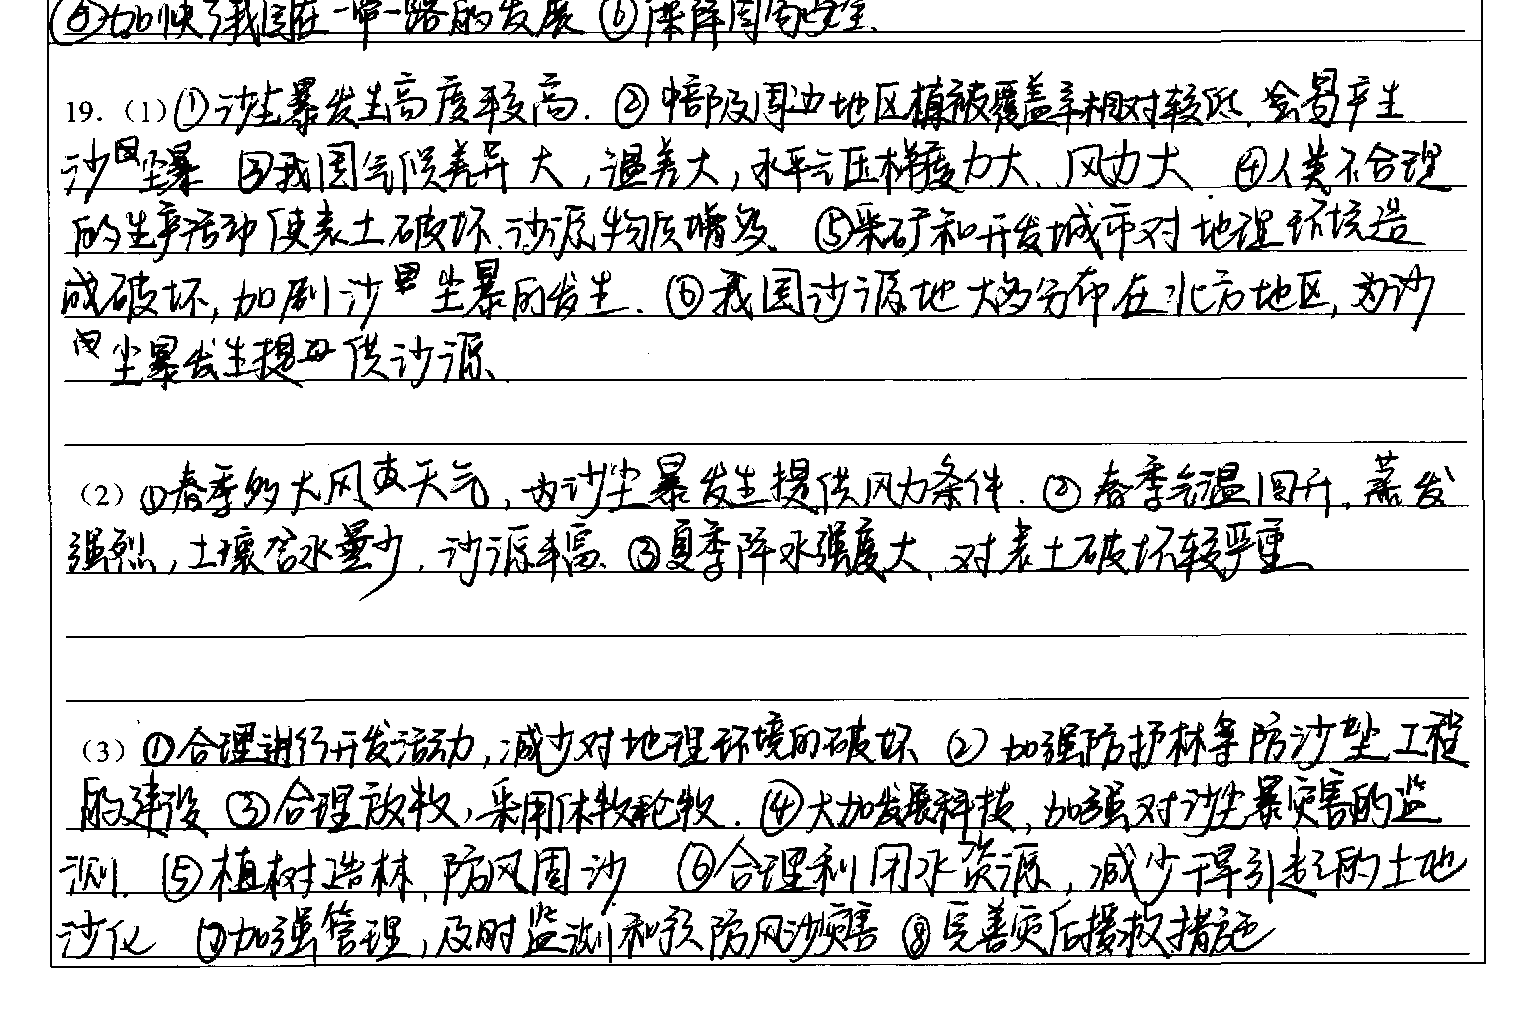 ⑤加快了我国在一带一路的发展 ⑥保障国家安全.
19.（1）①沙尘暴发生高度较高. ②中部及周边地区植被覆盖率相对较低, 容易产生
沙尘暴 ③我国气候差异大, 温差大, 水平气压梯度力大、风力大. ④人类不合理
的生产活动使表土破坏, 沙源物质增多、⑤采矿和开发城市对地理环境造
成破坏, 加剧沙尘暴的发生. ⑥我国沙源地大多分布在北方地区, 为沙
尘暴发生提供沙源、
（2）①春季多大风天气, 为沙尘暴发生提供风力条件. ②春季气温回升, 蒸发
强烈, 土壤含水量少, 沙源丰富、③夏季降水强度大, 对表土破坏较严重、
（3）①合理进行开发活动, 减少对地理环境的破坏、②加强防护林等防沙尘工程
的建设 ③合理放牧, 采用休牧轮牧. ④大加发展科技, 加强对沙尘暴灾害的监
测. ⑤植树造林, 防风固沙 ⑥合理利用水资源, 减少干旱引起的土地
沙化 ⑦加强管理, 及时监测和预防风沙灾害 ⑧完善灾后援救措施